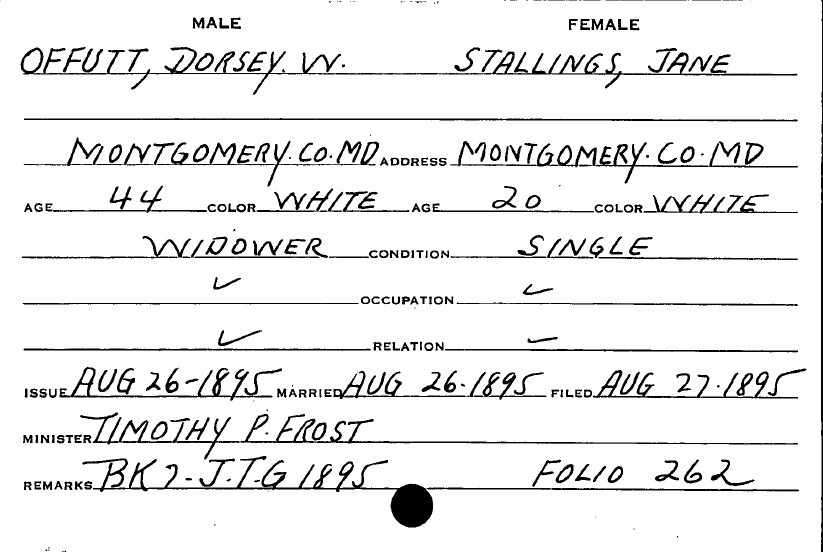 MALE FEMALE
OFFUTT, DORSEY. W. STALLINGS, JANE
MONTGOMERY. CO. MD ADDRESS MONTGOMERY. CO. MD
AGE 44 COLOR WHITE AGE 20 COLOR WHITE
WIDOWER CONDITION SINGLE
✓ OCCUPATION ✓
✓ RELATION ✓
ISSUE AUG 26-1895 MARRIED AUG 26.1895 FILED AUG 27.1895
MINISTER TIMOTHY P. FROST
REMARKS BK 7-J.T.G 1895 FOLIO 262